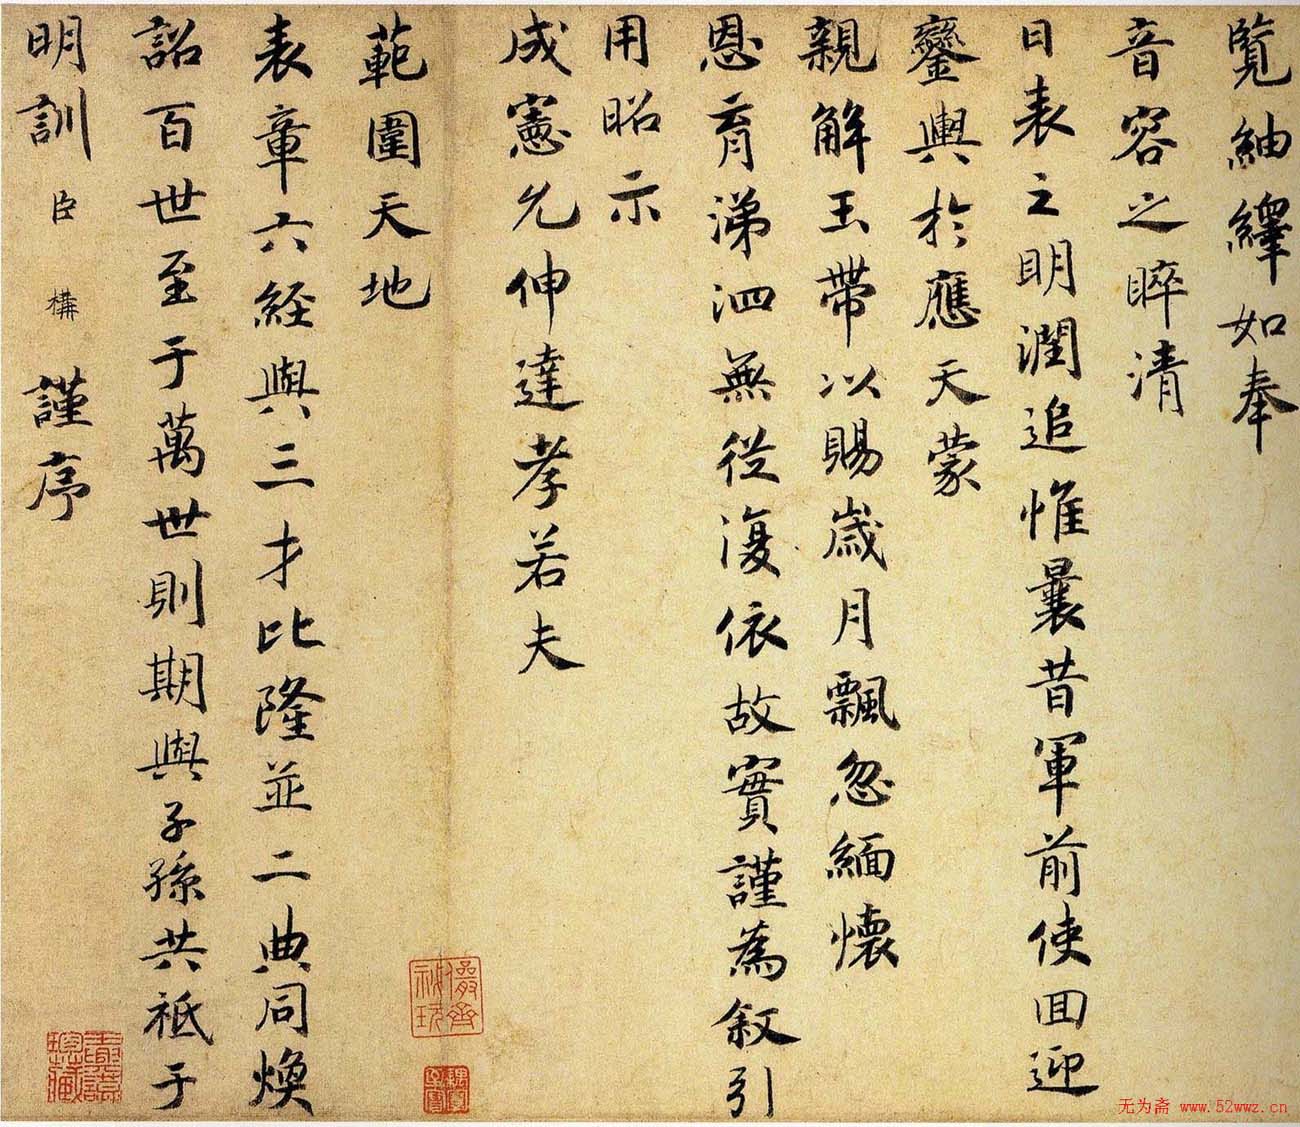 覽紬繹如奉
音容之睟清
日表之明潤追惟曩昔軍前使回迎
鑾輿於應天蒙
親解玉帶以賜歲月飄忽緬懷
恩育涕泗無從復依故實謹為叙引
用昭示
成憲允伸達孝若夫
範圍天地
表章六経與三才比隆並二典同煥
詔百世至于萬世則期與子孫共祗于
明訓臣構謹序
无为斋 www.52wwz.cn